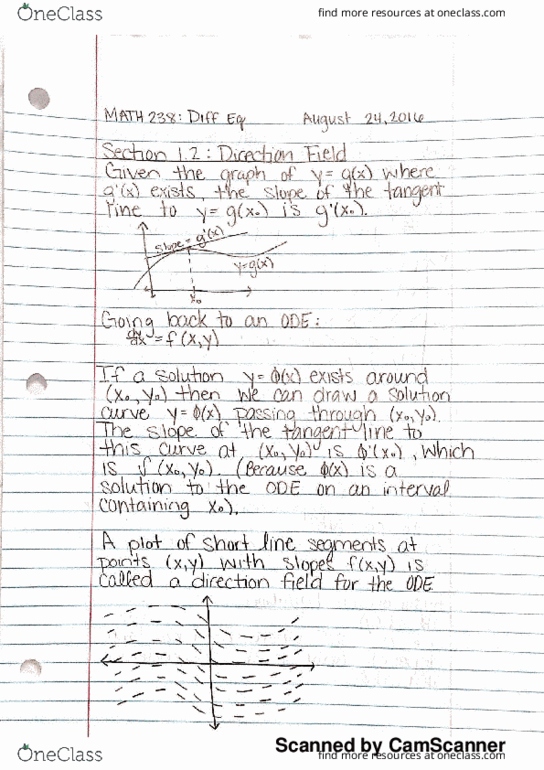 OneClass
find more resources at oneclass.com
MATH 238: Diff Eq August 24, 2016
Section 1.2: Direction Field
Given the graph of y = g(x) where
g'(x) exists, the slope of the tangent
line to y = g(x₀) is g'(x₀).
Slope = g'(x)
y=g(x)
x₀
Going back to an ODE:
dy/dx = f(x,y)
If a solution y = ϕ(x) exists around
(x₀, y₀) then we can draw a solution
curve y = ϕ(x) passing through (x₀, y₀).
The slope of the tangent line to
this curve at (x₀, y₀) is ϕ'(x₀), which
is f(x₀, y₀). (Because ϕ(x) is a
solution to the ODE on an interval
containing x₀).
A plot of short line segments at
points (x,y) with slopes f(x,y) is
called a direction field for the ODE
Scanned by CamScanner
OneClass
find more resources at oneclass.com